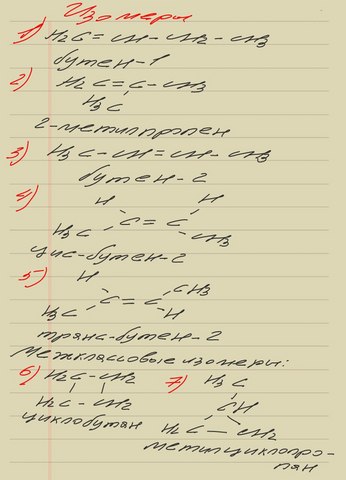 Изомеры
1) H2C = CH - CH2 - CH3
бутен-1
2) H2C = C - CH3
H3C
2-метилпропен
3) H3C - CH = CH - CH3
бутен-2
4) H H
C = C
H3C CH3
цис-бутен-2
5) H
C = C CH3
H3C H
транс-бутен-2
Межклассовые изомеры:
6) H2C - CH2 7) H3C
CH
H2C - CH2 H2C — CH2
циклобутан метилциклопро-
пан